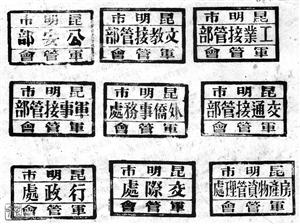 昆明市
工業接管部
軍管會
昆明市
文教接管部
軍管會
昆明市
公安部
軍管會
昆明市
交通接管部
軍管會
昆明市
外僑事務處
軍管會
昆明市
軍事接管部
軍管會
昆明市
房產物資管理處
軍管會
昆明市
交際處
軍管會
昆明市
行政處
軍管會